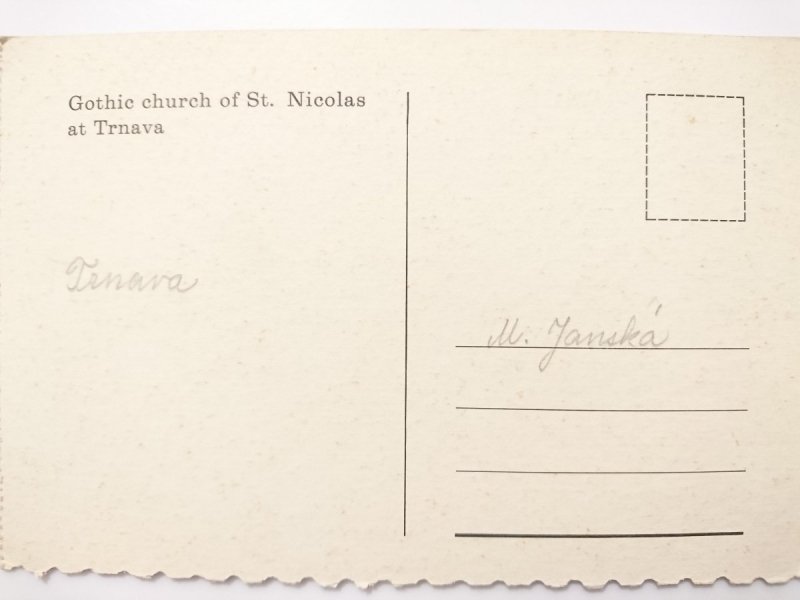 Gothic church of St. Nicolas
at Trnava
Trnava
M. Janská